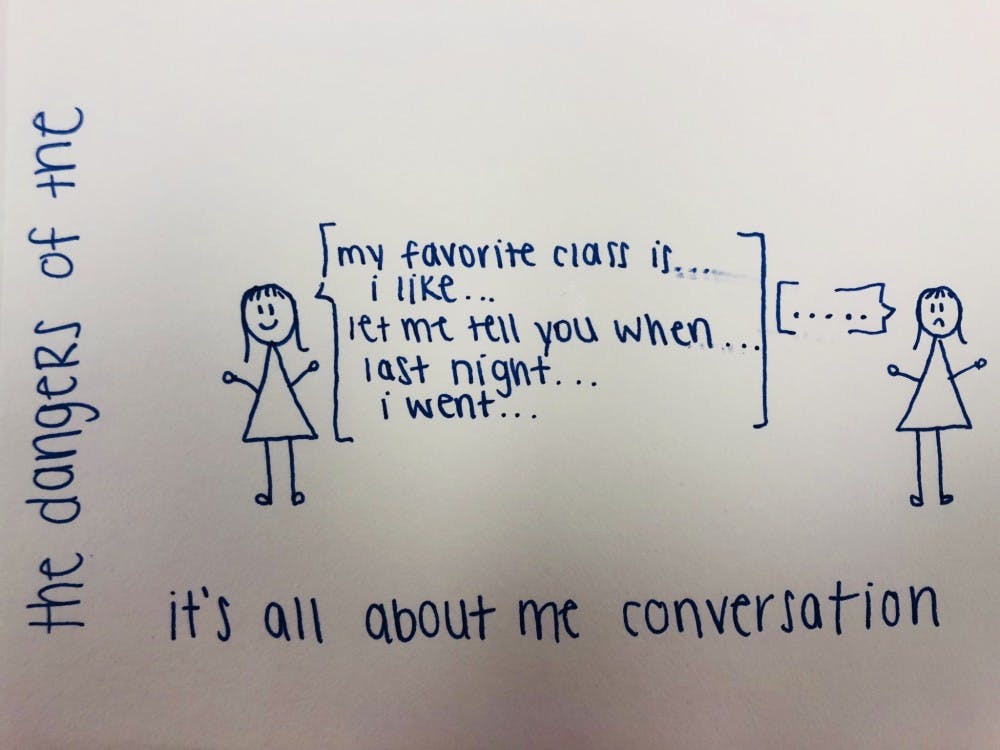 the dangers of the
my favorite class is...
i like...
let me tell you when...
last night...
i went...
.....
it's all about me conversation